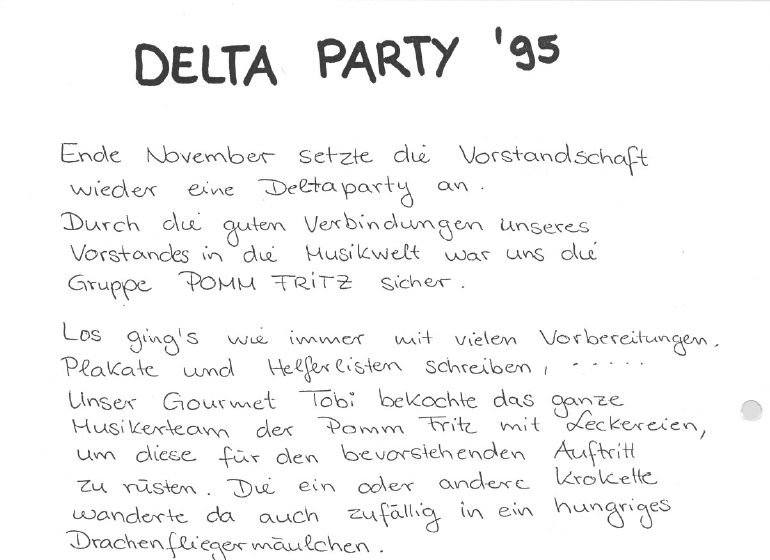 DELTA PARTY '95
Ende November setzte die Vorstandschaft
wieder eine Deltaparty an.
Durch die guten Verbindungen unseres
Vorstandes in die Musikwelt war uns die
Gruppe POMM FRiTZ sicher.
Los ging's wie immer mit vielen Vorbereitungen.
Plakate und Helferlisten schreiben, .....
Unser Gourmet Tobi bekochte das ganze
Musikerteam der Pomm Fritz mit Leckereien,
um diese für den bevorstehenden Auftritt
zu rüsten. Die ein oder andere Krokette
wanderte da auch zufällig in ein hungriges
Drachenfliegermäulchen.